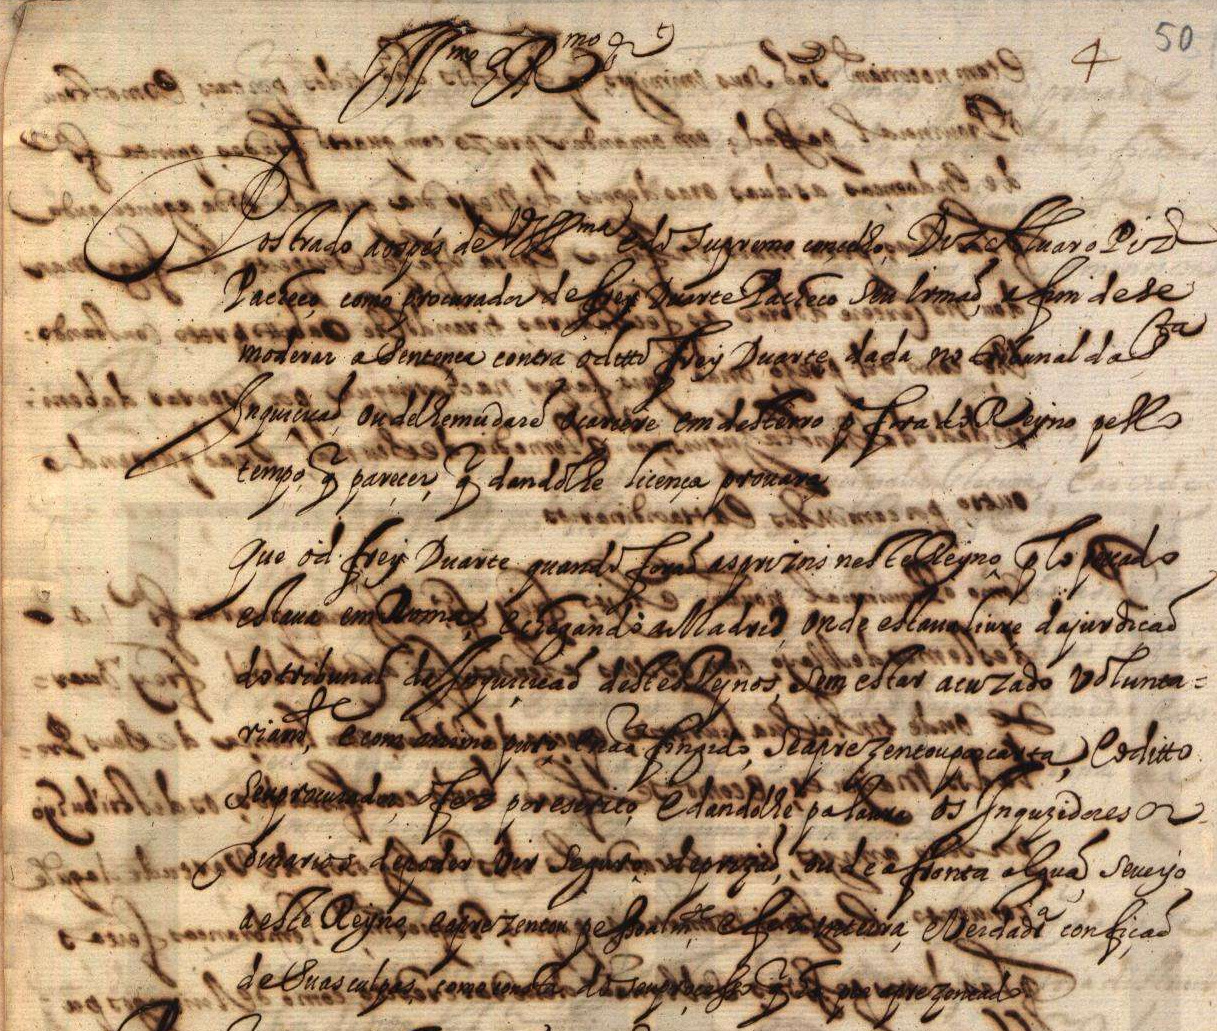 50
4
Illmo e Rmo Sr
Postrado aos pés de V Illma e do Supremo concelho, Diz Alvaro Piz
Pacheco, como procurador de frey Duarte Pacheco seu Irmaõ, a fim de se
moderar a Sentença contra o ditto frey Duarte dada no tribunal da Sta
Inquiciçaõ, ou de lhe mudarẽ o carcere em desterro p fora do Reyno pello
tempo q̃ parecer, q̃ dandolhe licença provara
Que o d. frey Duarte quando foraõ as prizois neste Reyno, plo
estava em Roma, e chegando a Madrid, onde estava livre da jurdicaõ
do tribunal da Inquiciçaõ destes Reynos, sem estar acuzado volunta=
riamte, e com animo puro e naõ fingido, se aprezentou por carta, e o ditto
seu procurador o fez por escrito, e dandolhe palavra os Inquizidores or-
dinarios de poder vir seguro de prizaõ, ou de afronta algũa, se veyo
a este Reyno, e aprezentou pessoalmte e fez inteira, e verdadra conficaõ
de suas culpas, como consta do seu processo q̃